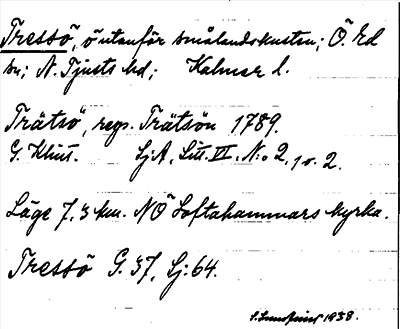 Tressö, ö utanför smålandskusten; Ö. Ed
sn; N. Tjusts hd; Kalmar l.
Trätsö, resp. Trätsön 1789.
G. Klint. Sj.A, Litt. VI. N:o 2, 1 o. 2.
Läge 7,3 km. NÖ Loftahammars kyrka.
Tressö G. 37, Sj: 64.
1938.